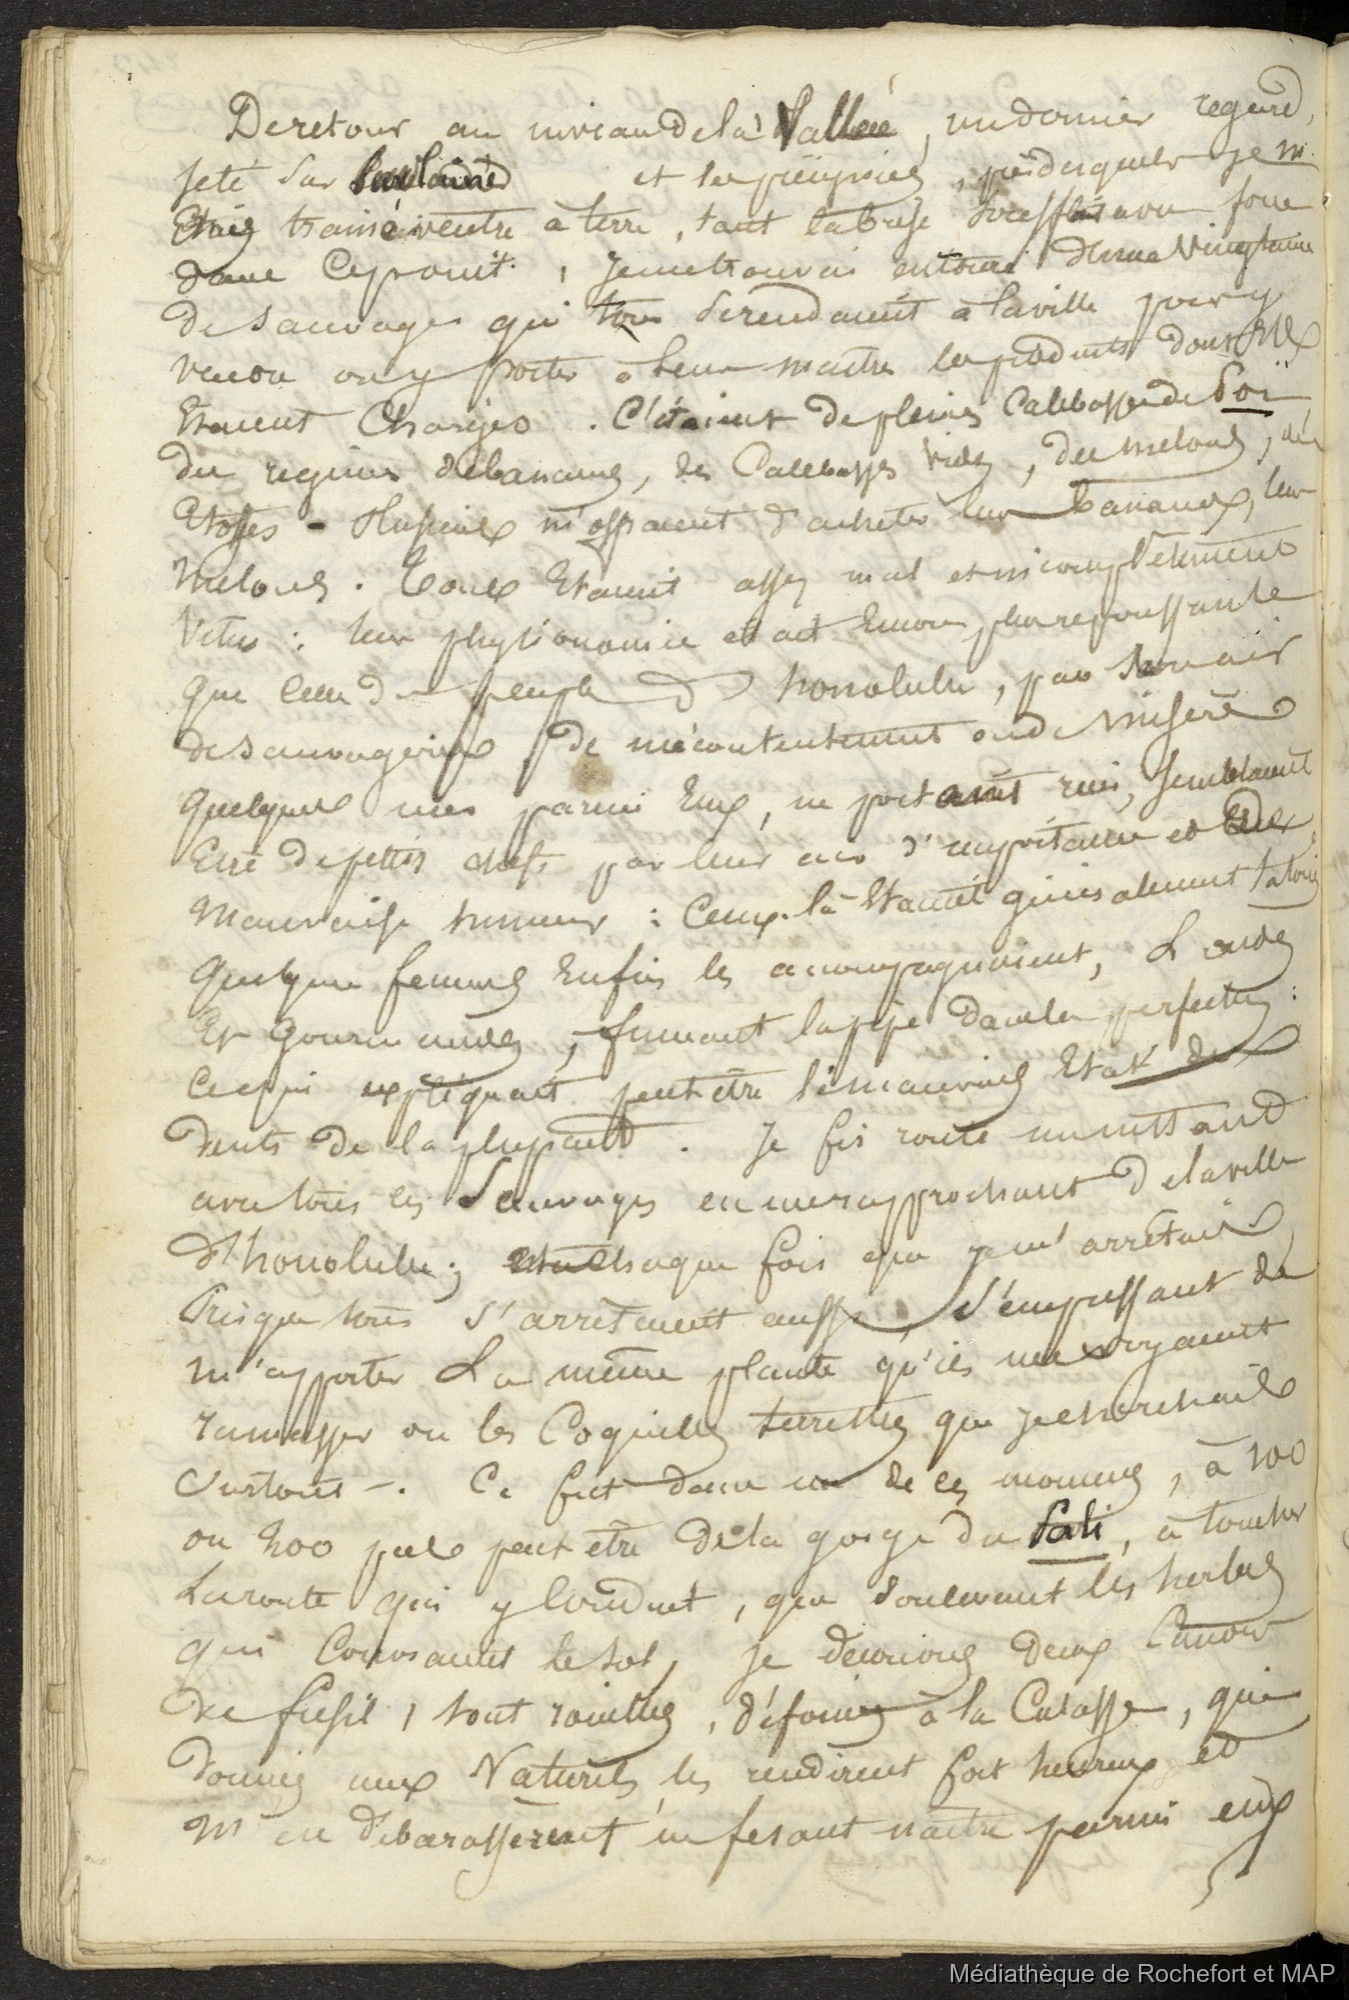 De retour au niveau de la Vallée, un dernier regard,
jeté sur et les , près desquels je m
Etais trainé ventre à terre, tant la brise soufflait avec force
dans ce point, je me trouvai entouré d'une vingtaine
de sauvages qui tous se rendaient à la ville pour y
vendre ou y porter à leur maitre les produits dont Ils
Etaient Chargés. C'étaient de pleines Calebasses de Poï,
des regimes de bananes, des Calebasses vides, des melons, des
Etoffes - Plusieurs m'offraient d'acheter leurs bananes, leurs
melons. Tous Etaient assez mal et incomplètement
Vetus : leur physionomie était Encore plus repoussante
que celle du peuple d'honolulu, par son air
de sauvagerie, de mécontentement ou de misère
quelques uns parmi Eux, ne portant rien, semblaient
Etre de petits chefs par leur air d'importance et de
mauvaise humeur : Ceux-là Etaient généralement tatoués
quelques femmes Enfin les accompagnaient, Laides
Et Gourmandes, fumant la pipe dans la perfection :
ce qui expliquait peut être le mauvais Etat des
dents de la plupart. Je fis route
avec tous ces Sauvages en me rapprochant de la ville
d'honolulu ; chaque fois que je m'arrêtais
Presque tous s'arrêtaient aussi, s'empressant de
m'apporter La même plante qu'ils me voyaient
ramasser ou les Coquilles terrestres que je cherchais
surtout -. Ce fut dans un de ces moments, à 100
ou 200 pas peut être de la gorge du Pali, à toucher
La route qui y Conduit, que soulevant les herbes
qui Couvraient le sol, je découvris deux Canons
de fusil, tout rouillés, défoncés à la Culasse, qui
donnés aux Naturels les rendirent fort heureux et
m'en débarassèrent en fesant naître parmi eux
Médiathèque de Rochefort et MAP